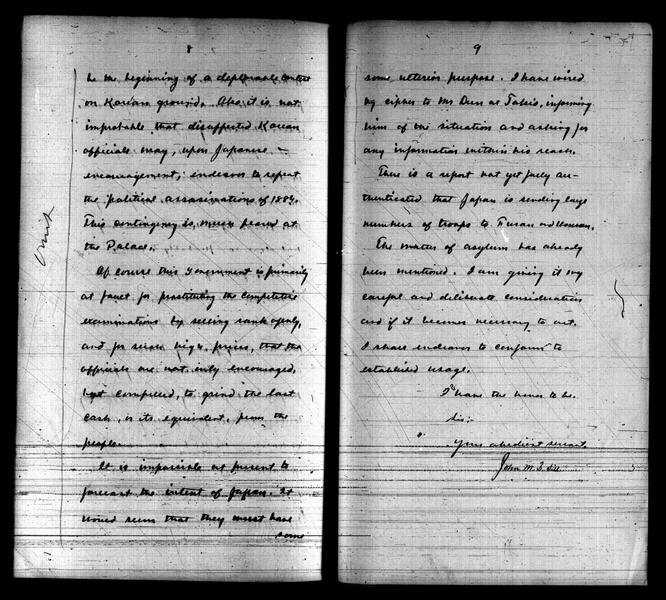 8
be the beginning of a deplorable contest
on Korean ground. Also it is not
improbable that disaffected Korean
officials may, upon Japanese
encouragement, endeavor to repeat
the political assassinations of 1884.
This contingency is much feared at
the Palace.
Omit
Of course this Government is primarily
at fault for prostituting the competitive
examinations by selling rank openly,
and for such high prices, that the
officials are not only encouraged,
but compelled, to grind the last
cash, or its equivalent, from the
people.
It is impossible at present to
forecast the intent of Japan. It
would seem that they must have
some
9
some ulterior purpose. I have wired
by cipher to Mr Dun at Tokio, informing
him of our situation and asking for
any information within his reach.
There is a report not yet fully au-
thenticated that Japan is sending large
numbers of troops to Fusan and Wonsan.
The matter of asylum has already
been mentioned. I am giving it my
careful and deliberate consideration
and if it becomes necessary to act.
I shall endeavor to conform to
established usage.
I have the honor to be.
Sir:
Your obedient servant.
John M. B. Sill